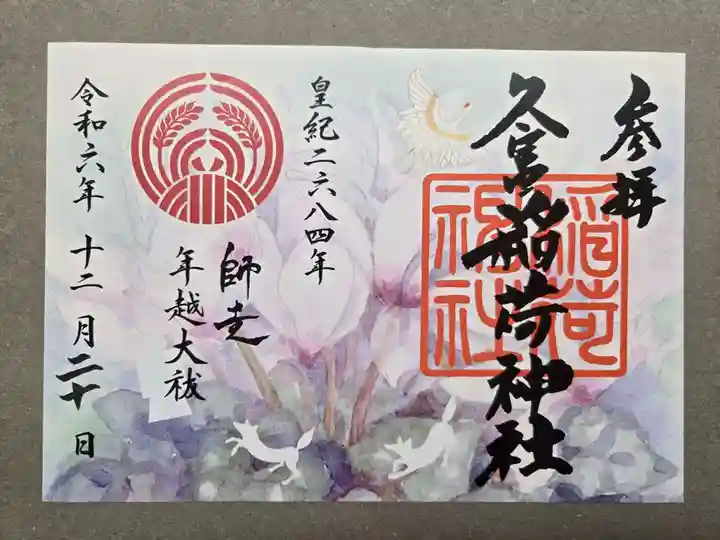 参拝
久宮稲荷神社
稲荷
神社
皇紀二六八四年
師走
年越大祓
令和六年 十二月二十日